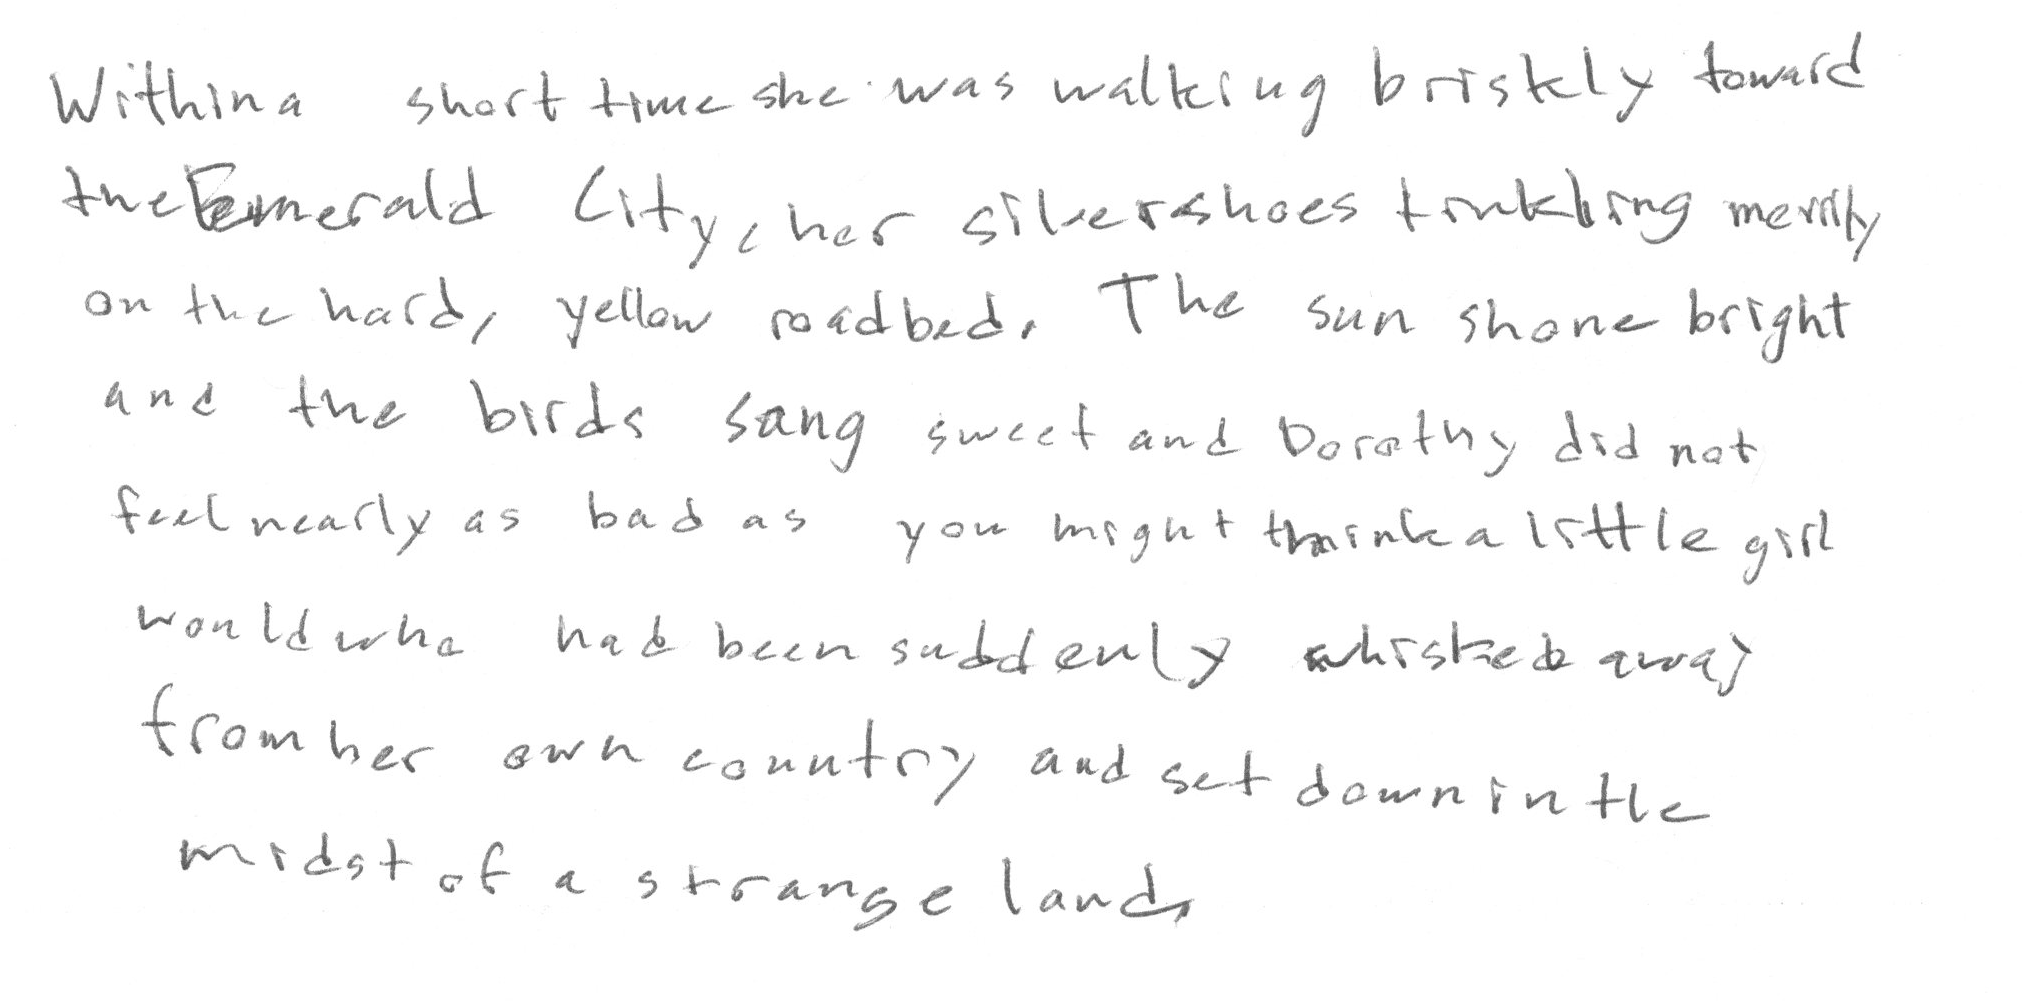 Within a short time she was walking briskly toward
the Emerald City, her silver shoes tinkling merrily
on the hard, yellow roadbed. The sun shone bright
and the birds sang sweet and Dorothy did not
feel nearly as bad as you might think a little girl
would who had been suddenly whisked away
from her own country and set down in the
midst of a strange land.